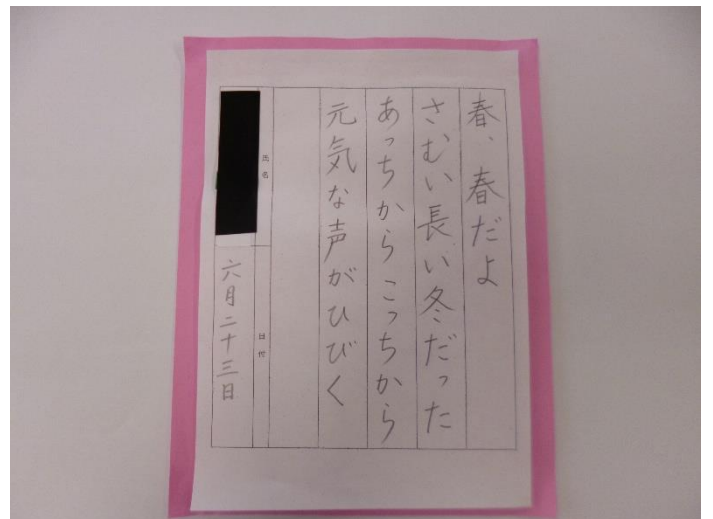 春、春だよ
さむい長い冬だった
あっちからこっちから
元気な声がひびく
氏名
日付
六月二十三日